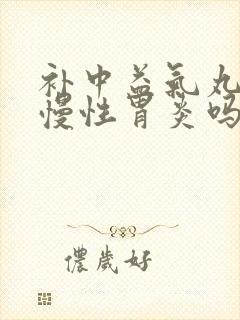 补中益氣丸
慢性胃炎吗
儂歲好